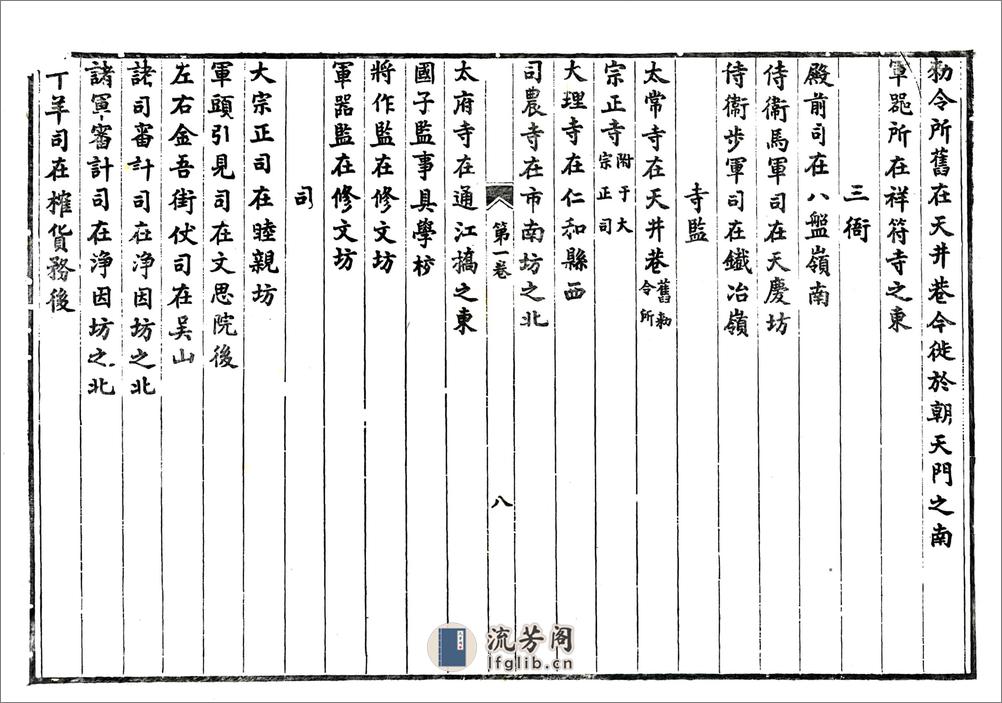 勑令所舊在天井巷今徙於朝天門之南
軍器所在祥符寺之東
三衙
殿前司在八盤嶺南
侍衞馬軍司在天慶坊
侍衞步軍司在鐵冶嶺
寺監
太常寺在天井巷舊勑令所
宗正寺附于大宗正司
大理寺在仁和縣西
司農寺在市南坊之北
第一卷
八
太府寺在通江橋之東
國子監事具學校
將作監在修文坊
軍器監在修文坊
司
大宗正司在睦親坊
軍頭引見司在文思院後
左右金吾街仗司在吳山
諸司審計司在淨因坊之北
諸軍審計司在淨因坊之北
丁羊司在榷貨務後
流芳阁
lfglib.cn